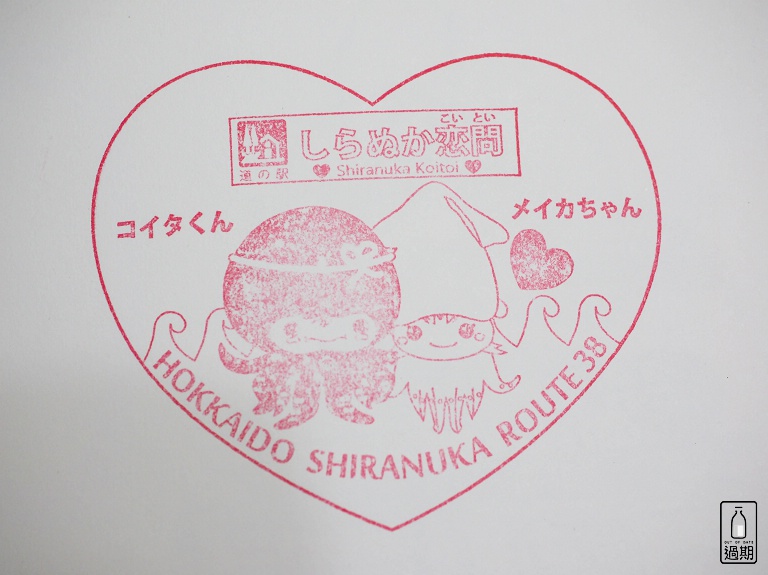 こい とい
しらぬか恋問
道の駅
Shiranuka Koitoi
コイタくん
メイカちゃん
HOKKAIDO SHIRANUKA ROUTE 38
OUT OF DATE
過期